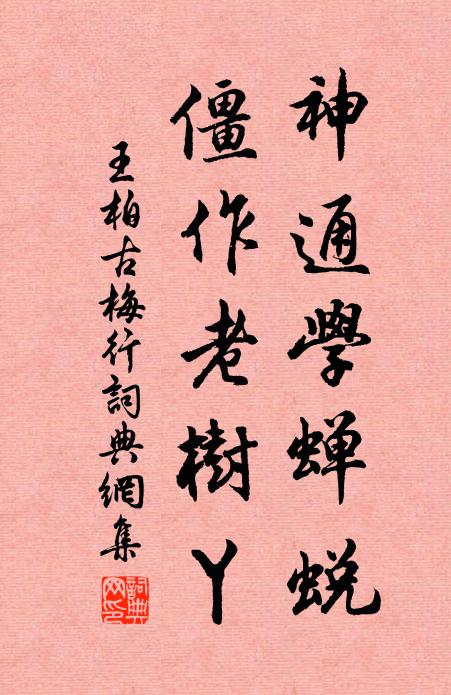 神通學蝉蜕
僵作老樹丫
王柏古梅行詞典網集
詞典網印